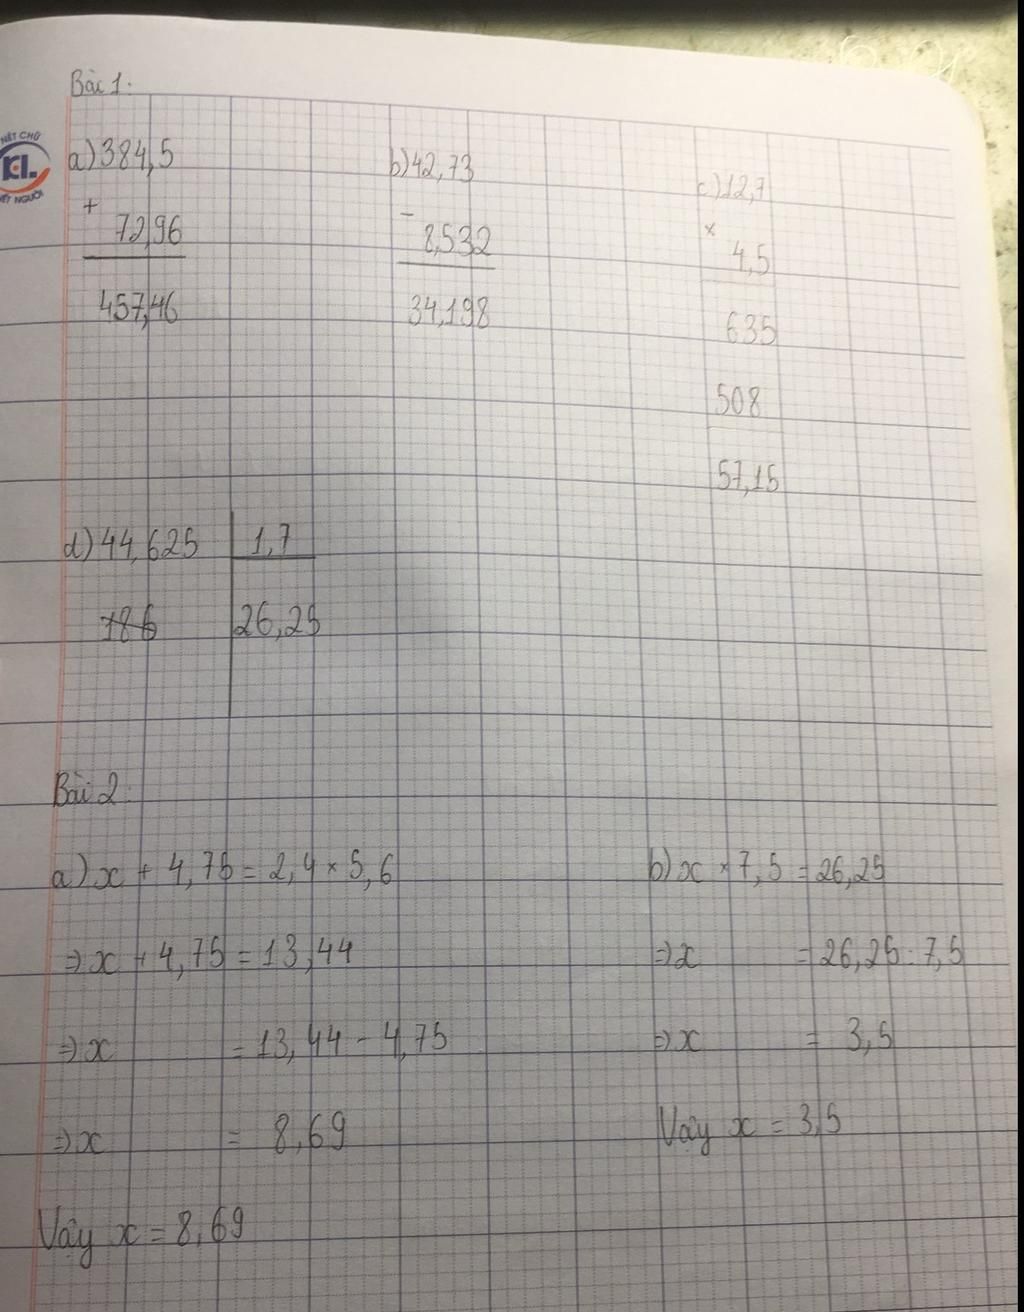 Bài 1:
NÉT CHỮ
KL
NẾT NGƯỜI
a) 384,5
+
72,96
457,46
b) 42,73
-
8,532
34,198
c) 12,7
×
4,5
635
508
57,15
d) 44,625 1,7
26,25
Bài 2
a) x + 4,75 = 2,4 × 5,6
⇒ x + 4,75 = 13,44
⇒ x = 13,44 - 4,75
⇒ x = 8,69
Vậy x = 8,69
b) x × 7,5 = 26,25
⇒ x = 26,25 : 7,5
⇒ x = 3,5
Vậy x = 3,5